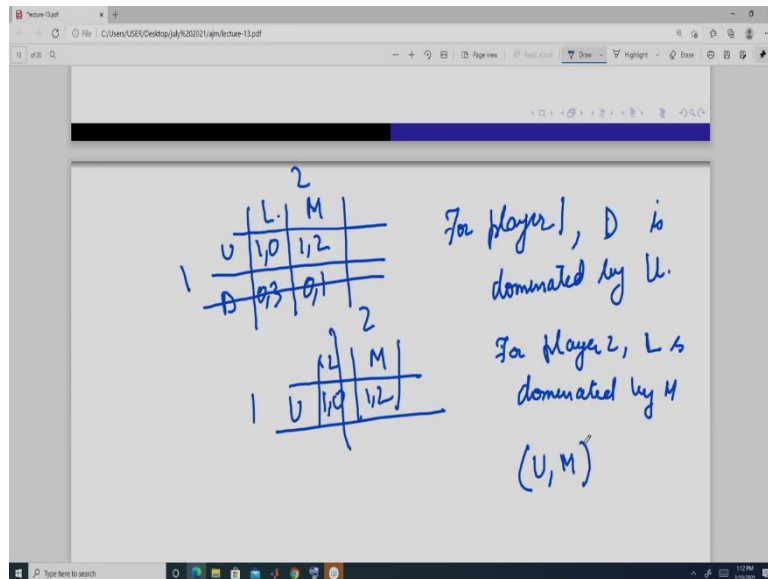 lecture-13.pdf
File | C:/Users/USER/Desktop/july%202021/ajm/lecture-13.pdf
Page view
Draw
Highlight
Erase
2
L M
U 1,0 1,2
1
D 0,3 0,1
For player 1, D is
dominated by U.
2
L M
1 U 1,0 1,2
For player 2, L is
dominated by M
(U, M)
Type here to search
1:12 PM